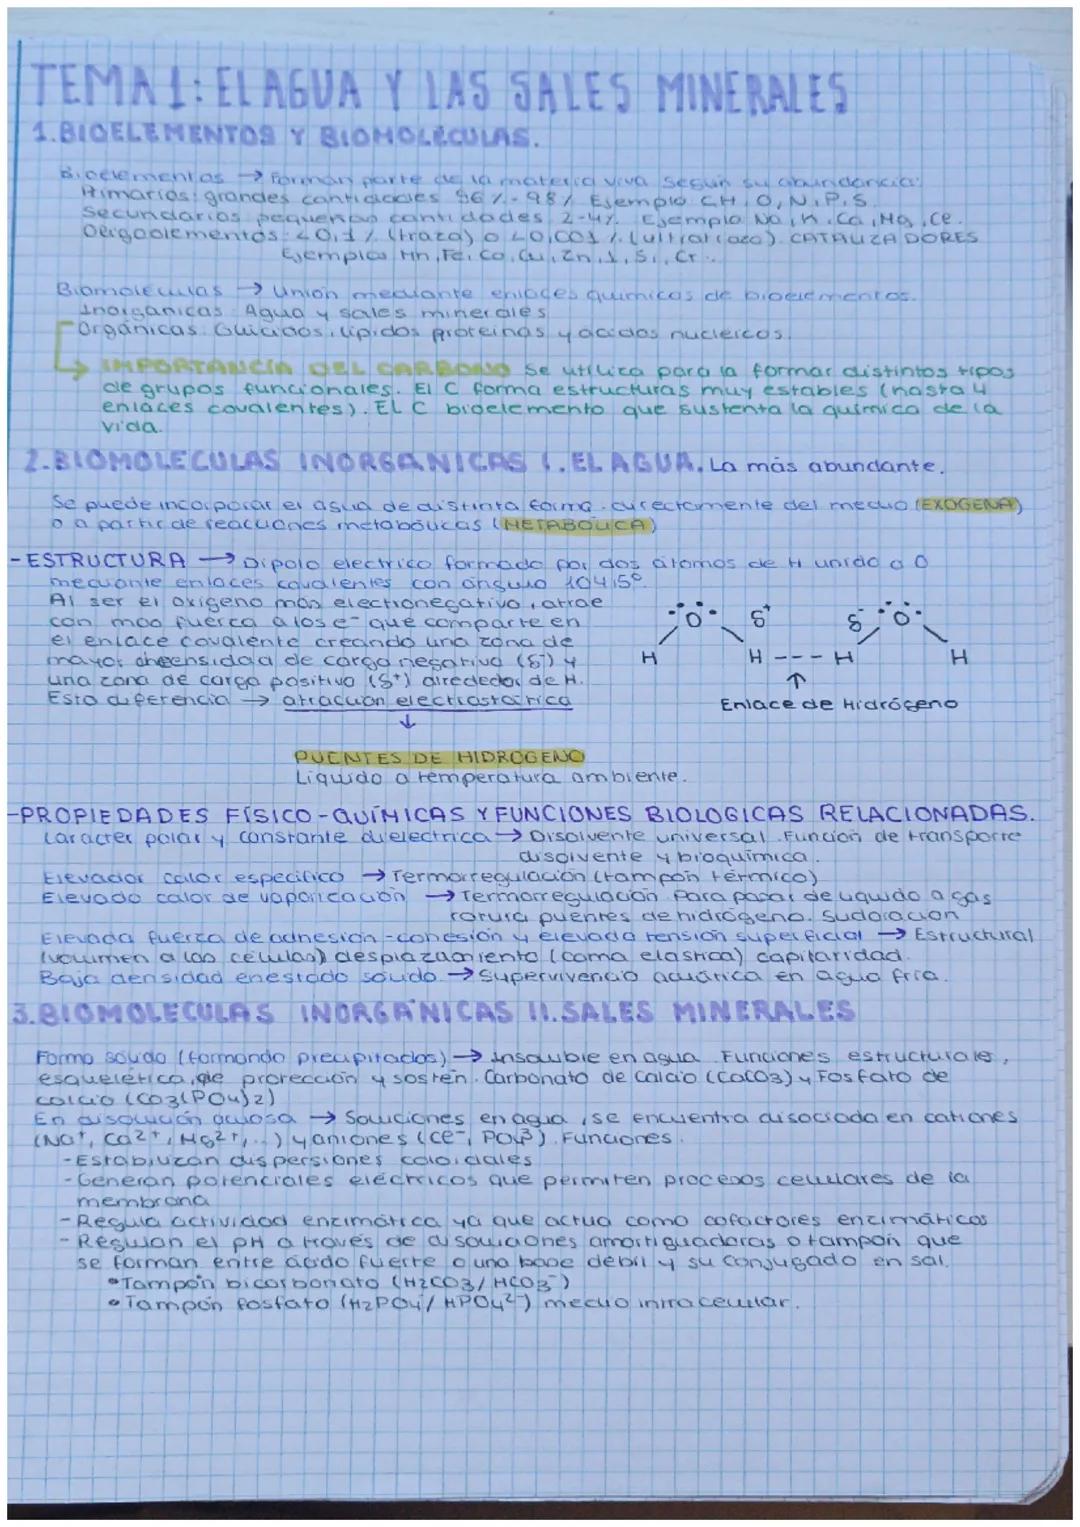 TEMA 1: EL AGUA Y LAS SALES MINERALES
1. BIOELEMENTOS Y BIOMOLÉCULAS.
Bioelementos → Forman parte de la materia viva según su abundancia:
Primarios: grandes cantidades 96%-98% Ejemplo CH, O, N, P, S.
Secundarios pequeñas cantidades 2-4%. Ejemplo Na, K, Ca, Mg, Ce.
Oligoelementos <0,1% (traza) o <0,001% (ultratraza). CATALIZADORES
Ejemplos Mn, Fe, Co, Cu, Zn, I, Si, Cr...
Biomoléculas → Unión mediante enlaces químicos de bioelementos.
Inorgánicas Agua y sales minerales
Orgánicas: Glúcidos, lípidos proteínas y ácidos nucleicos.
IMPORTANCIA DEL CARBONO Se utiliza para la formar distintos tipos
de grupos funcionales. El C forma estructuras muy estables (hasta 4
enlaces covalentes). EL C bioelemento que sustenta la química de la
vida.
2. BIOMOLECULAS INORGÁNICAS I. EL AGUA. La más abundante.
Se puede incorporar el agua de distinta forma. directamente del medio (EXOGENA)
o a partir de reacciones metabólicas (METABÓLICA)
-ESTRUCTURA → Dipolo electrico formado por dos átomos de H unido a O
mediante enlaces covalentes con ángulo 104,5º.
Al ser el oxígeno más electronegativo, atrae
con más fuerza a los e⁻ que comparte en
el enlace covalente creando una zona de
mayor densidad de carga negativa (δ⁻) y
una zona de carga positiva (δ⁺) alrededor de H.
Esta diferencia → atracción electrostática
↓
O δ⁺ δ⁻ O
H H --- H H
↑
Enlace de Hidrógeno
PUENTES DE HIDROGENO
Líquido a temperatura ambiente.
-PROPIEDADES FÍSICO-QUÍMICAS Y FUNCIONES BIOLOGICAS RELACIONADAS.
Caracter polar y constante dielectrica → Disolvente universal. Función de transporte
disolvente y bioquímica.
Elevador calor específico → Termorregulación (tampón térmico)
Elevado calor de vaporización → Termorregulación. Para pasar de liquido a gas
rotura puentes de hidrógeno. Sudoración
Elevada fuerza de adhesión-cohesión y elevada tensión superficial → Estructural
(volumen a las células) desplazamiento (cama elastica) capilaridad.
Baja densidad en estado sólido. → Supervivencia acuática en agua fría.
3. BIOMOLECULAS INORGÁNICAS II. SALES MINERALES
Forma sólido (formando precipitados) → Insoluble en agua. Funciones estructurales,
esquelética, de protección y sostén. Carbonato de calcio (CaCO3) y Fosfato de
calcio (CO3(PO4)2)
En disolución acuosa → Soluciones en agua, se encuentra disociada en cationes
(Na⁺, Ca2⁺, Mg2⁺, ..) y aniones (Ce⁻, PO4³). Funciones.
-Estabilizan dispersiones coloidales
-Generan potenciales eléctricos que permiten procesos celulares de la
membrana
-Regula actividad enzimática ya que actua como cofactores enzimáticos
-Regulan el pH a través de disoluciones amortiguadoras o tampón que
se forman entre ácido fuerte o una base débil y su conjugado en sal.
•Tampón bicarbonato (H2CO3/HCO3⁻)
•Tampón fosfato (H2PO4⁻/HPO4²⁻) medio intracelular.